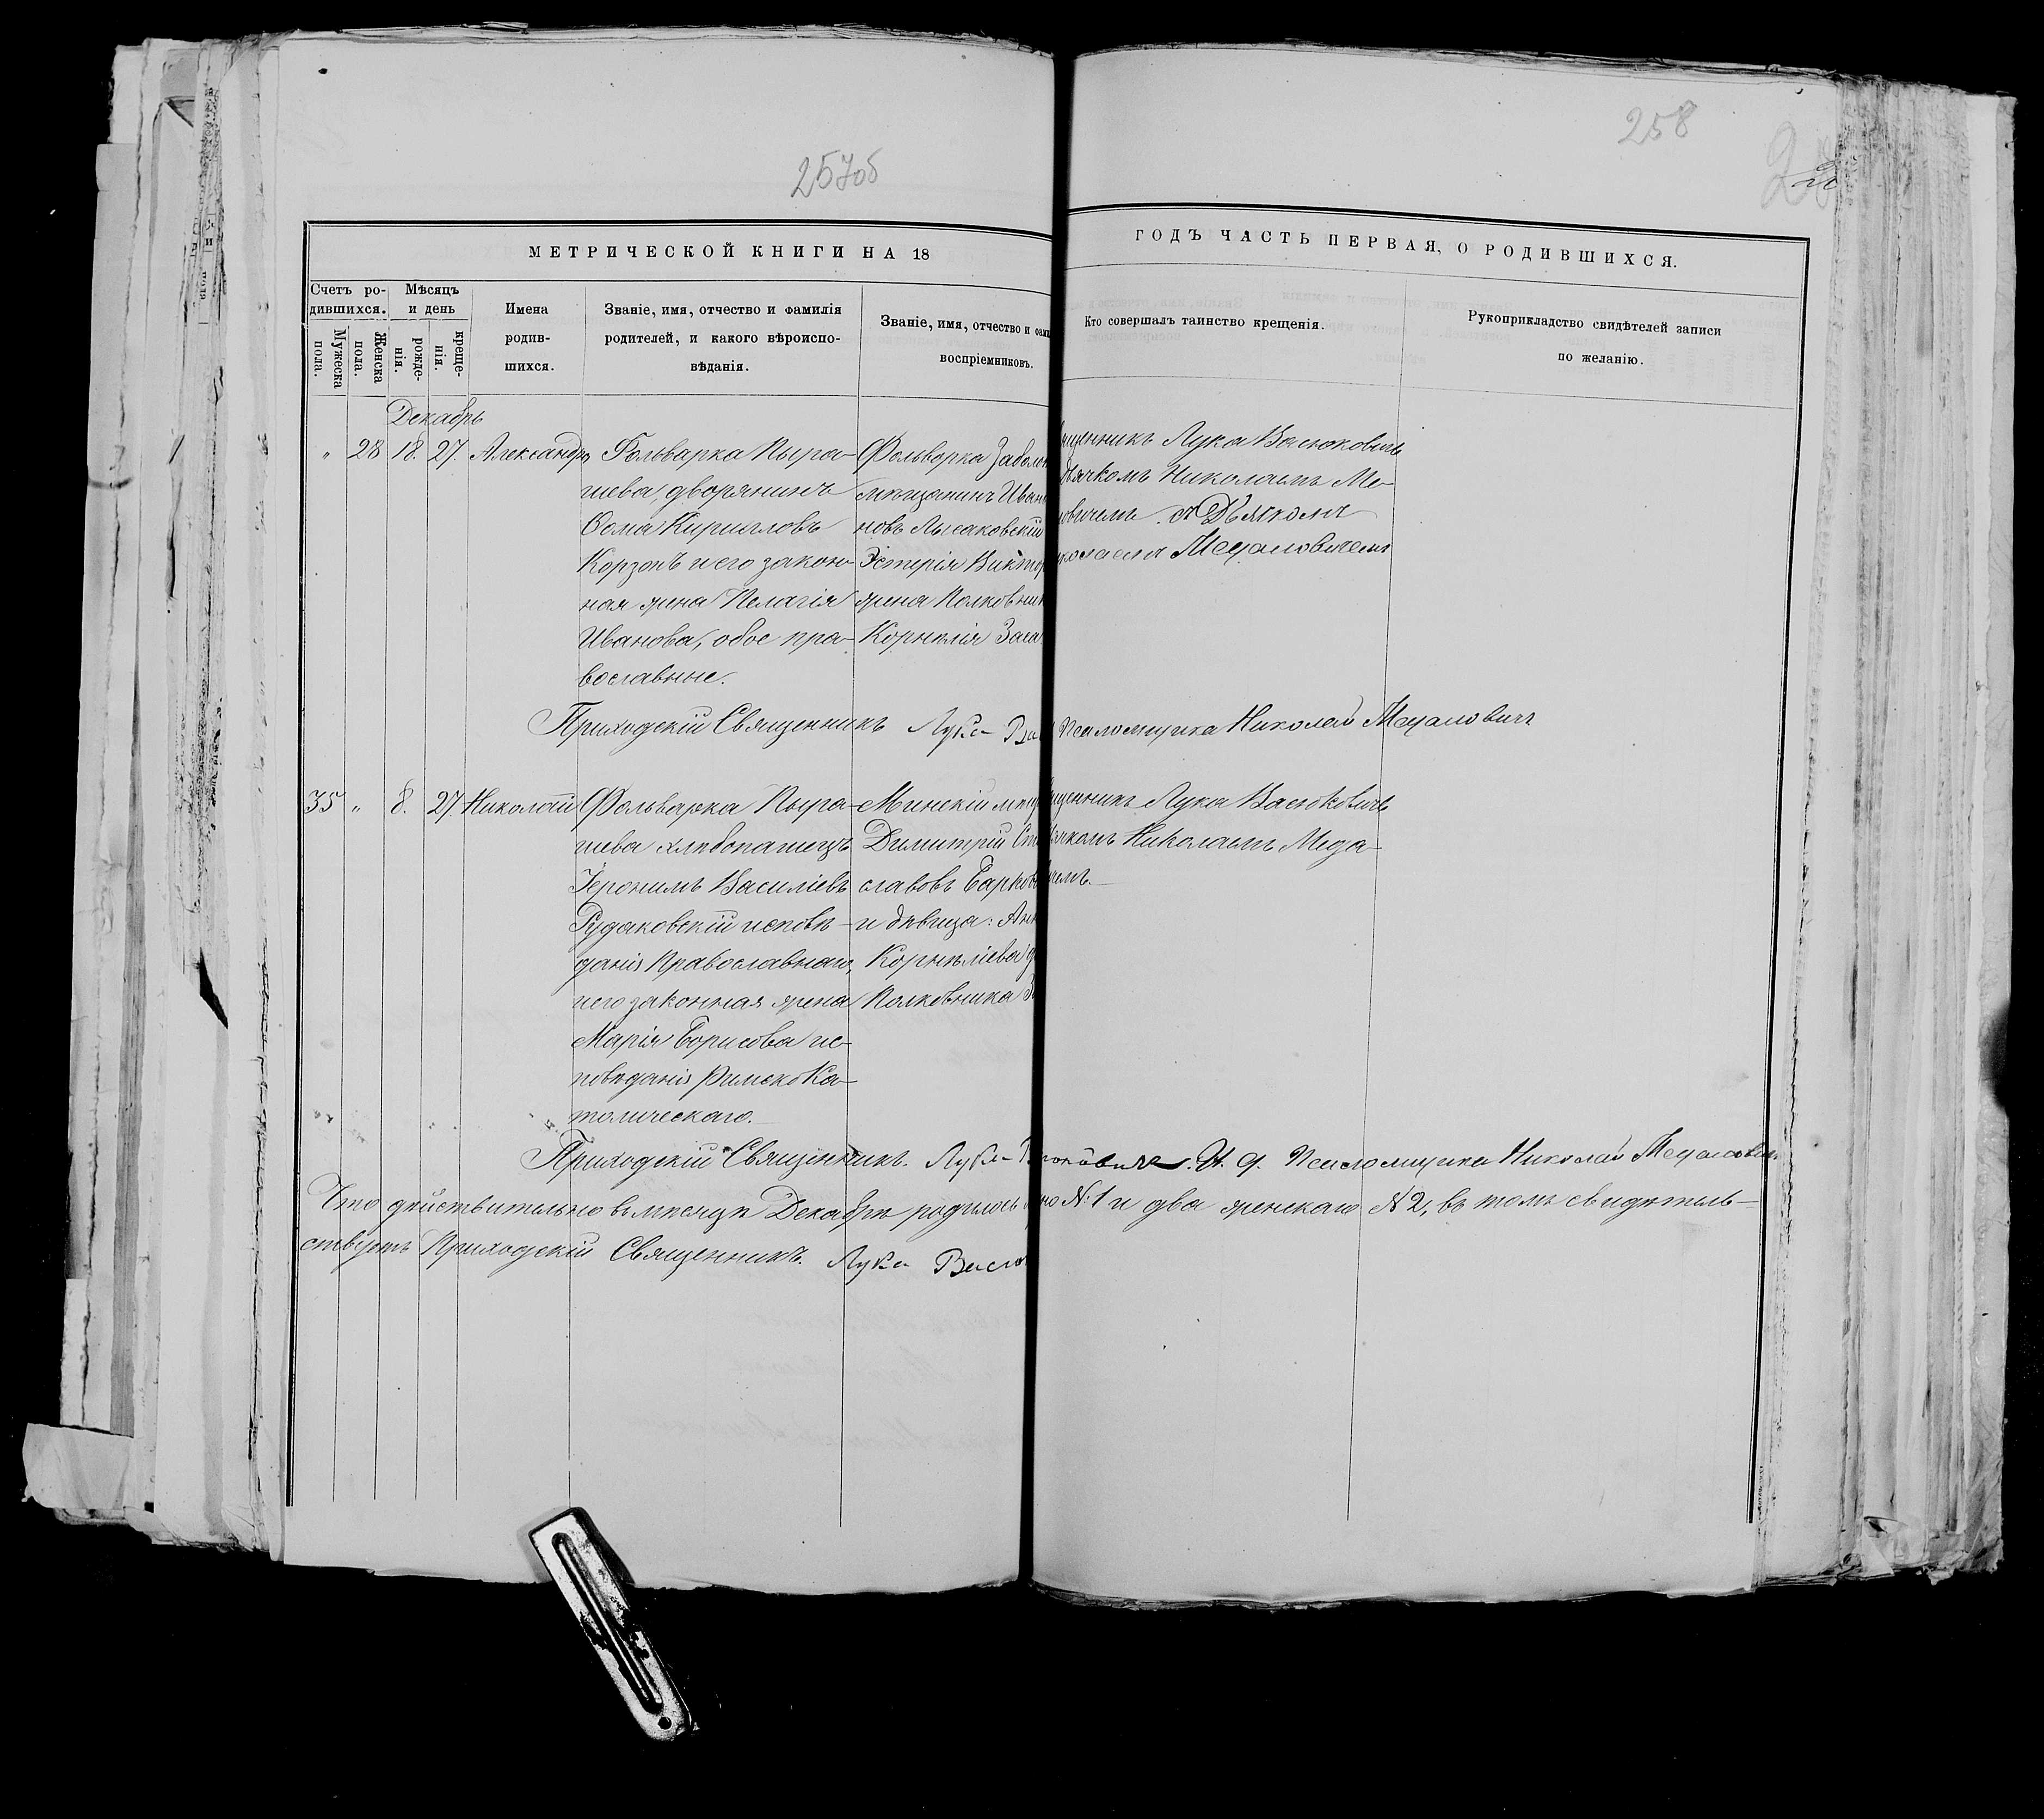 257об
258
МЕТРИЧЕСКОЙ КНИГИ НА 18
ГОДЪ ЧАСТЬ ПЕРВАЯ, О РОДИВШИХСЯ.
Счетъ ро-
дившихся.
Мужеска
пола.
Женска
пола.
Мѣсяцъ
и день
рожде-
нія.
креще-
нія.
Имена
родив-
шихся.
Званіе, имя, отчество и фамилія
родителей, и какого вѣроиспо-
вѣданія.
Званіе, имя, отчество и фами
воспріемниковъ.
Кто совершалъ таинство крещенія.
Рукоприкладство свидѣтелей записи
по желанію.
Декабрь
" 28 18. 27. Александра
Фольварка Пыра-
шева, дворянинъ
Ѳома Кирилловъ
Корзонъ и его закон-
ная жена Пелагія
Иванова, обое пра-
вославные.
Фольварка Забол
мѣщанинъ Иван
новъ Лысаковскій
Эстерія Виктор
жена Полковник
Корнилія Зага
щенникъ Лука Васюковичъ
Дьячкомъ Николаемъ Ме-
овичемъ. съ Дьячкомъ
колаемъ Мецаловичемъ
Приходскій Священникъ Лука Ва
Псаломщика Николай Мецаловичъ
35 " 8. 27. Николай
Фольварка Пыра-
шева хлѣбопашецъ
Іеронимъ Василіевъ
Рудаковскій исповѣ-
данія Православнаго,
и его законная жена
Марія Борисова ис-
повѣданія Римско Ка-
толическаго.
Минскій мѣщ
Димитрій Ст
славовъ Барков
и дѣвица: Анн
Корнилієва д
Полковника З
щенникъ Лука Васюковичъ
ячкомъ Николаемъ Меца-
чемъ.
Приходскій Священникъ. Лука В юковичъ. И. д. Псаломщика Николай Мецалович
Что дѣйствительно въ мѣсяцѣ Декабрѣ родилось но № 1 и два женскаго № 2, въ томъ свидѣтель-
ствуетъ Приходскій Священникъ. Лука Васю